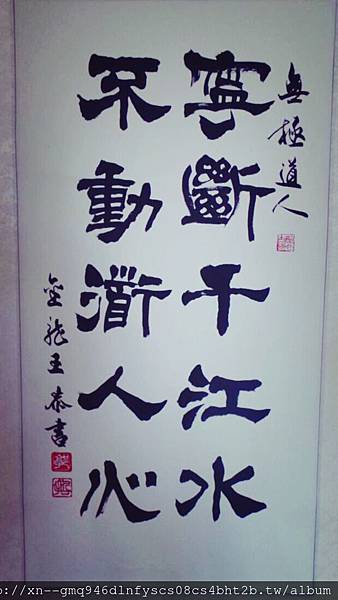 無極道人
寧斷千江水
不動衜人心
金龍王泰書
p://xn--gmq946dlnfyscs08cs4bht2b.tw/album